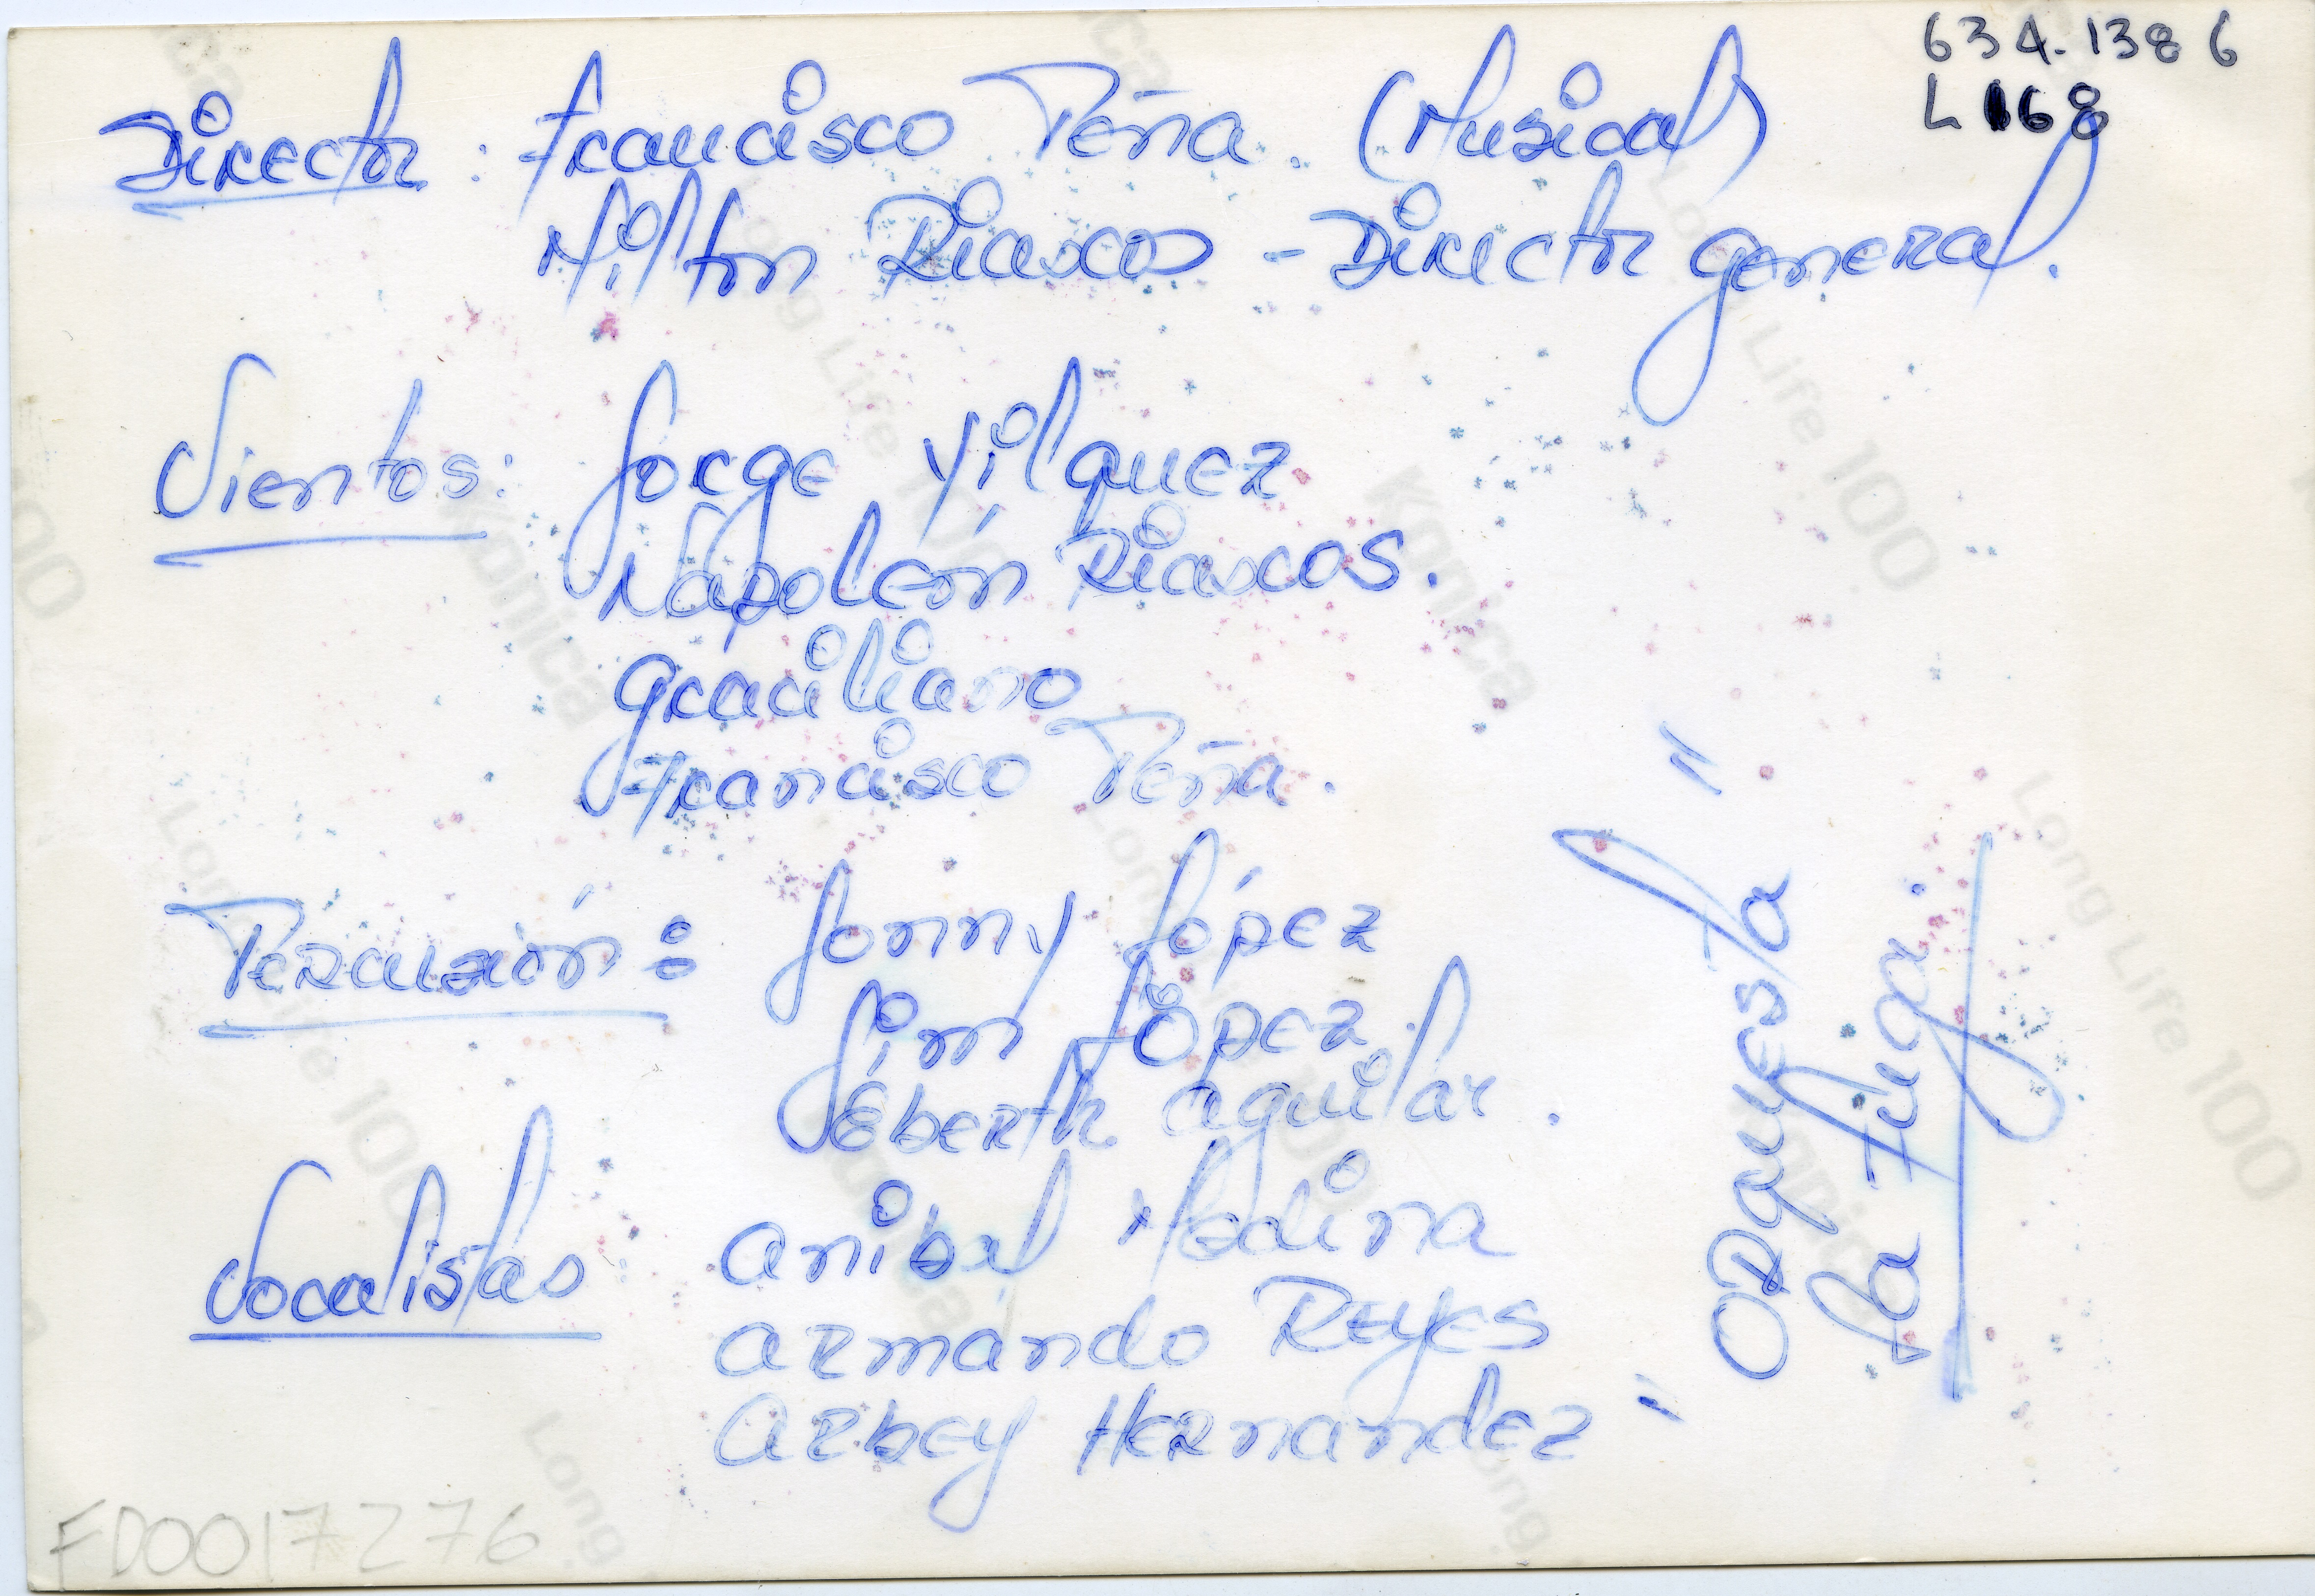 634.1386
L 168
Director: Francisco Peña. (Musical)
Milton Riascos - Director general.
Vientos: Jorge Yilquez
Napoleón Riascos.
Graciliano
Francisco Peña.
Percusión: Jonny López
Jim López
Éberth Aguilar.
Vocalistas Anibal Medina
Armando Reyes
Arbey Hernandez
"Orquesta"
La Fuga.
FD0017276
Konica
Long Life 100